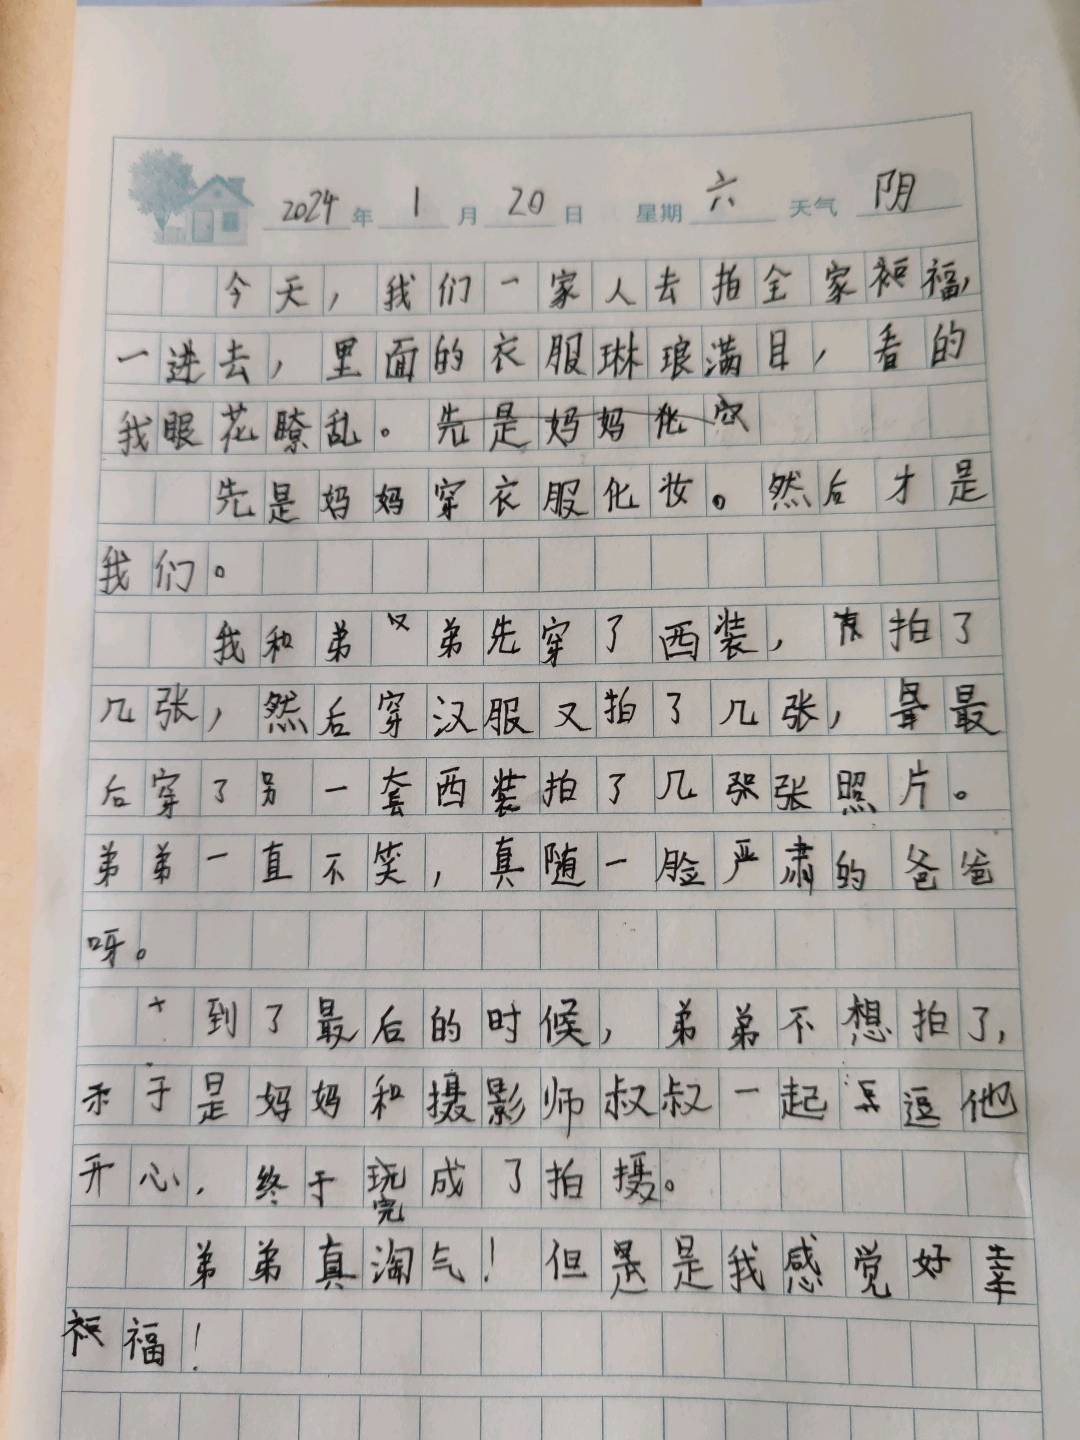 2024年 1月 20日 星期六 天气 阴
今天，我们一家人去拍全家福，
一进去，里面的衣服琳琅满目，看的
我眼花瞭乱。先是妈妈化
先是妈妈穿衣服化妆。然后才是
我们。
我和弟弟先穿了西装，拍了
几张，然后穿汉服又拍了几张，最
后穿了另一套西装拍了几张照片。
弟弟一直不笑，真随一脸严肃的爸爸
呀。
到了最后的时候，弟弟不想拍了，
于是妈妈和摄影师叔叔一起逗他
开心，终于完成了拍摄。
弟弟真淘气！但是是我感觉好幸
福！